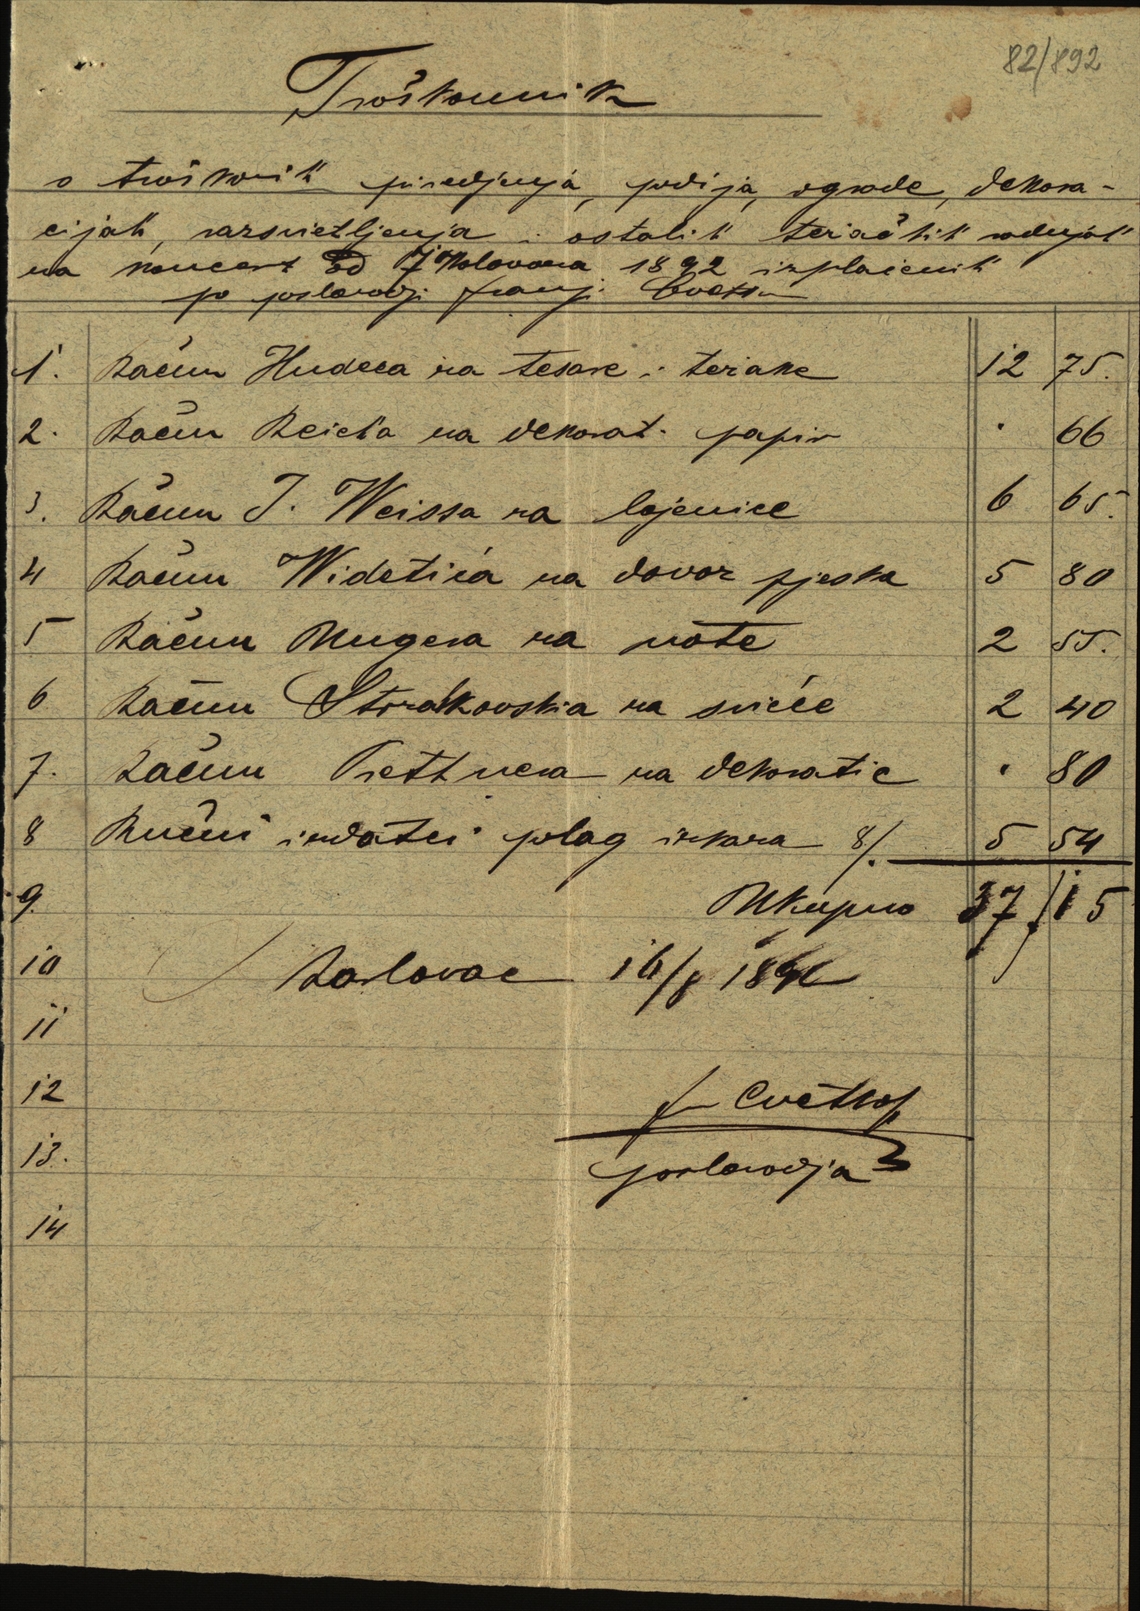 82/892
Troškovnik
o troškovih priredjenja, podija, ograde, dekora-
cijah, razsvietljenja i ostalih težačkih radnjah
na koncert od 7 Kolovoza 1892 izplaćenih
po poslovodji Franji Cvetku
1. Račun Hudeca za tesare i težake 12 75.
2. Račun Reicha za dekorat. papir . 66
3. Račun J. Weissa za lojenice 6 65.
4 Račun Widetića za dovoz pjeska 5 80
5 Račun Mugera za note 2 55.
6 Račun za svieće 2 40
7. Račun Prettnera za dekoratie . 80
8 Ručni izdatci polag izkaza 8/. 5 54
9. Ukupno 37 15
10 Karlovac 16/8 1892
11
12 Cvetko
13. poslovodja
14